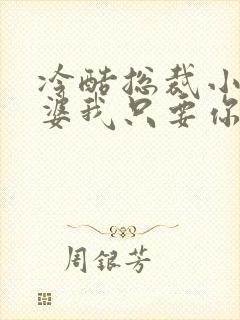 冷酷总裁小
婆我只要你
周银芳